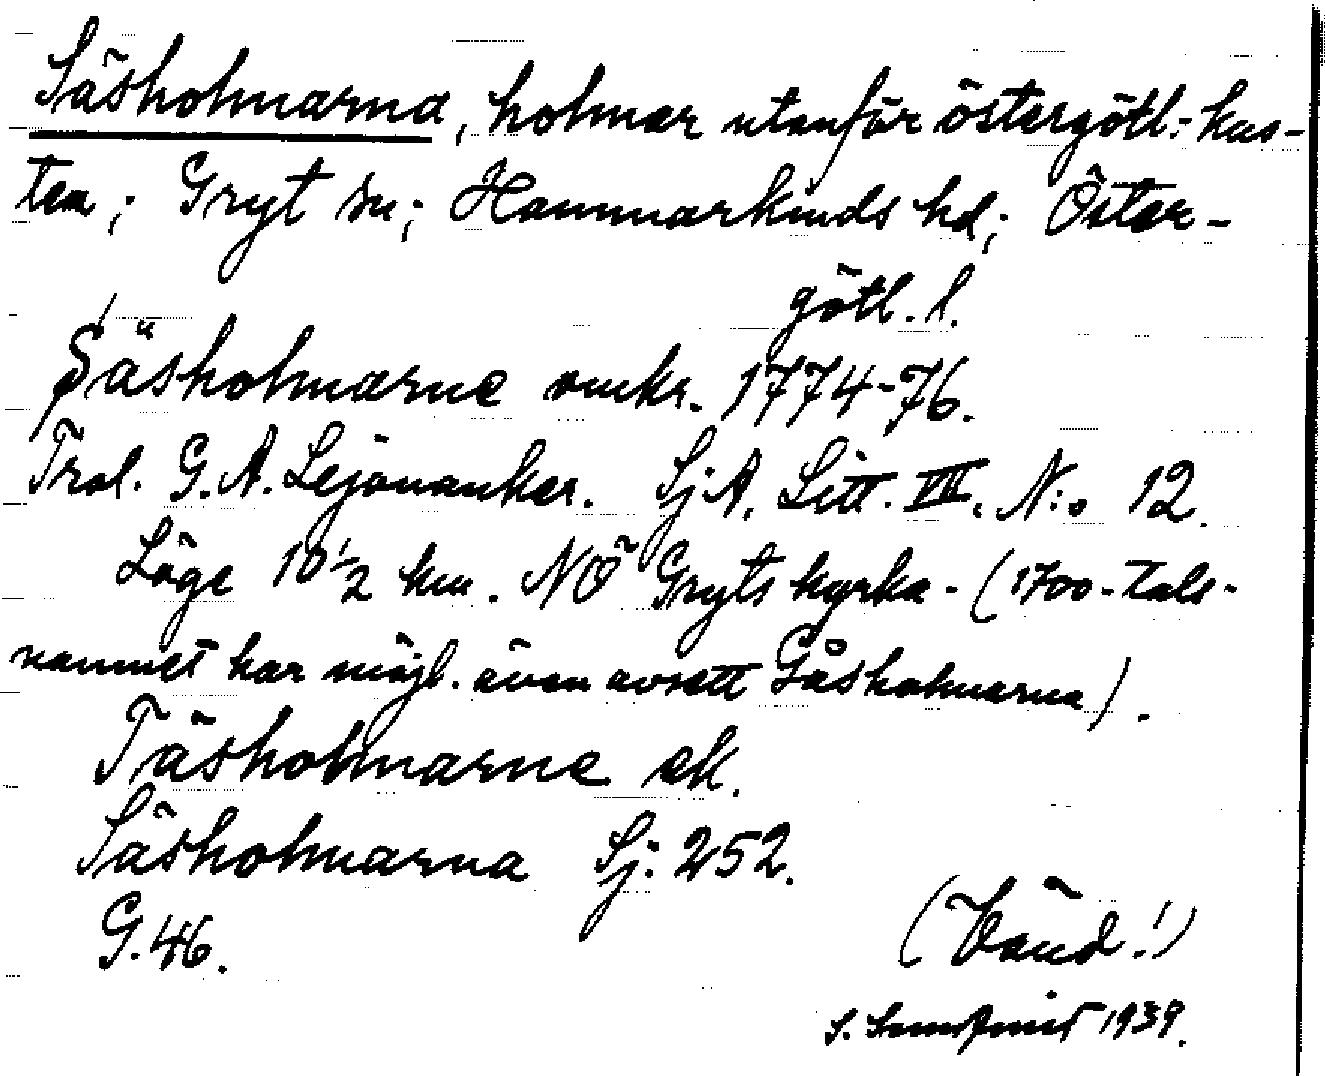 Säsholmarna, holmar utanför östergötl:- kus-
ten; Gryt sn; Hammarkinds hd; Öster-
götl. l.
Säsholmarne omkr. 1774-76.
Trol. G. A. Lejonanker. Sj A. Litt. VII. N:o 12.
Läge 10 1/2 km. NÖ Gryts kyrka. (1700-tals-
namnet har möjl. även avsett Gåsholmarna).
Täsholmarne ek.
Säsholmarna Sj: 252.
G. 46.
(Vänd!)
S. 1939.